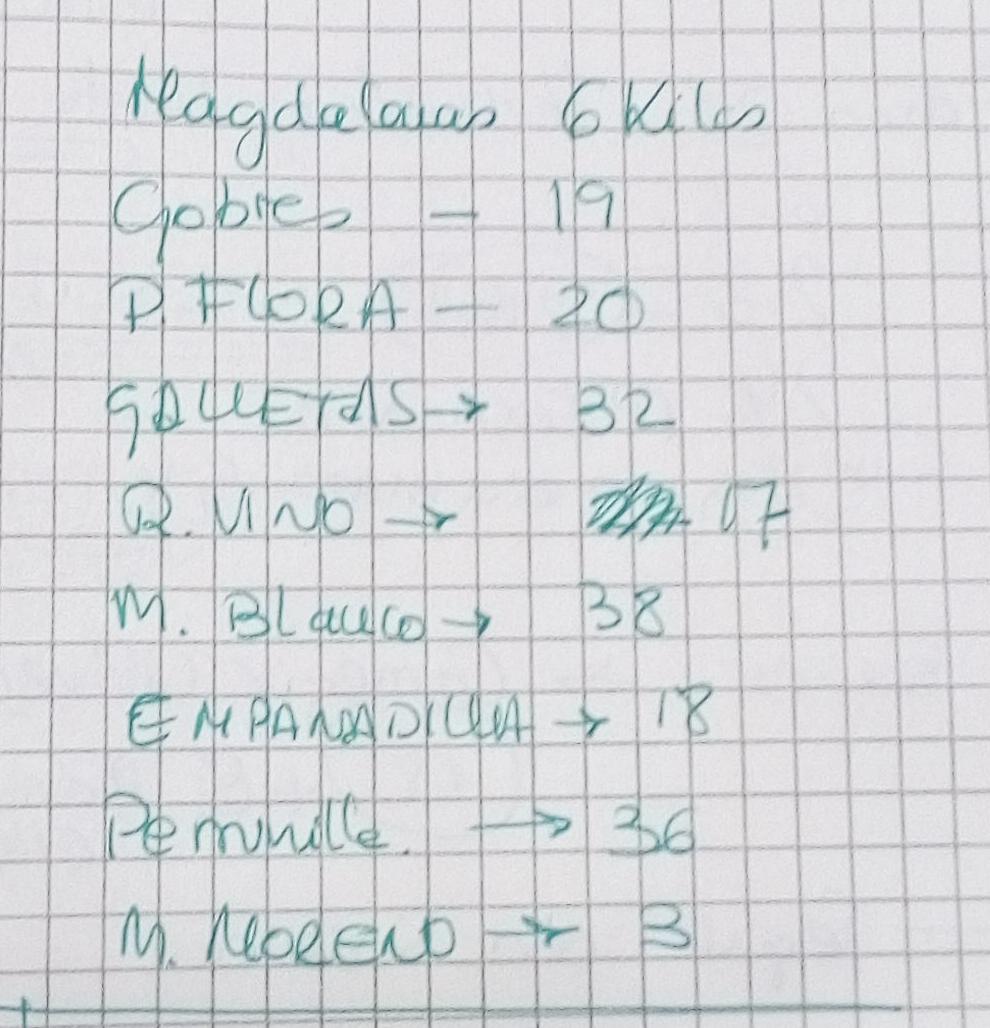 Magdalenas 6 Kilos
Gobres — 19
P. FLORA — 20
GALLETAS → 32
R. VINO → 17
M. Blanco → 38
EMPANADILLA → 18
→ 36
M. MORENO → 3